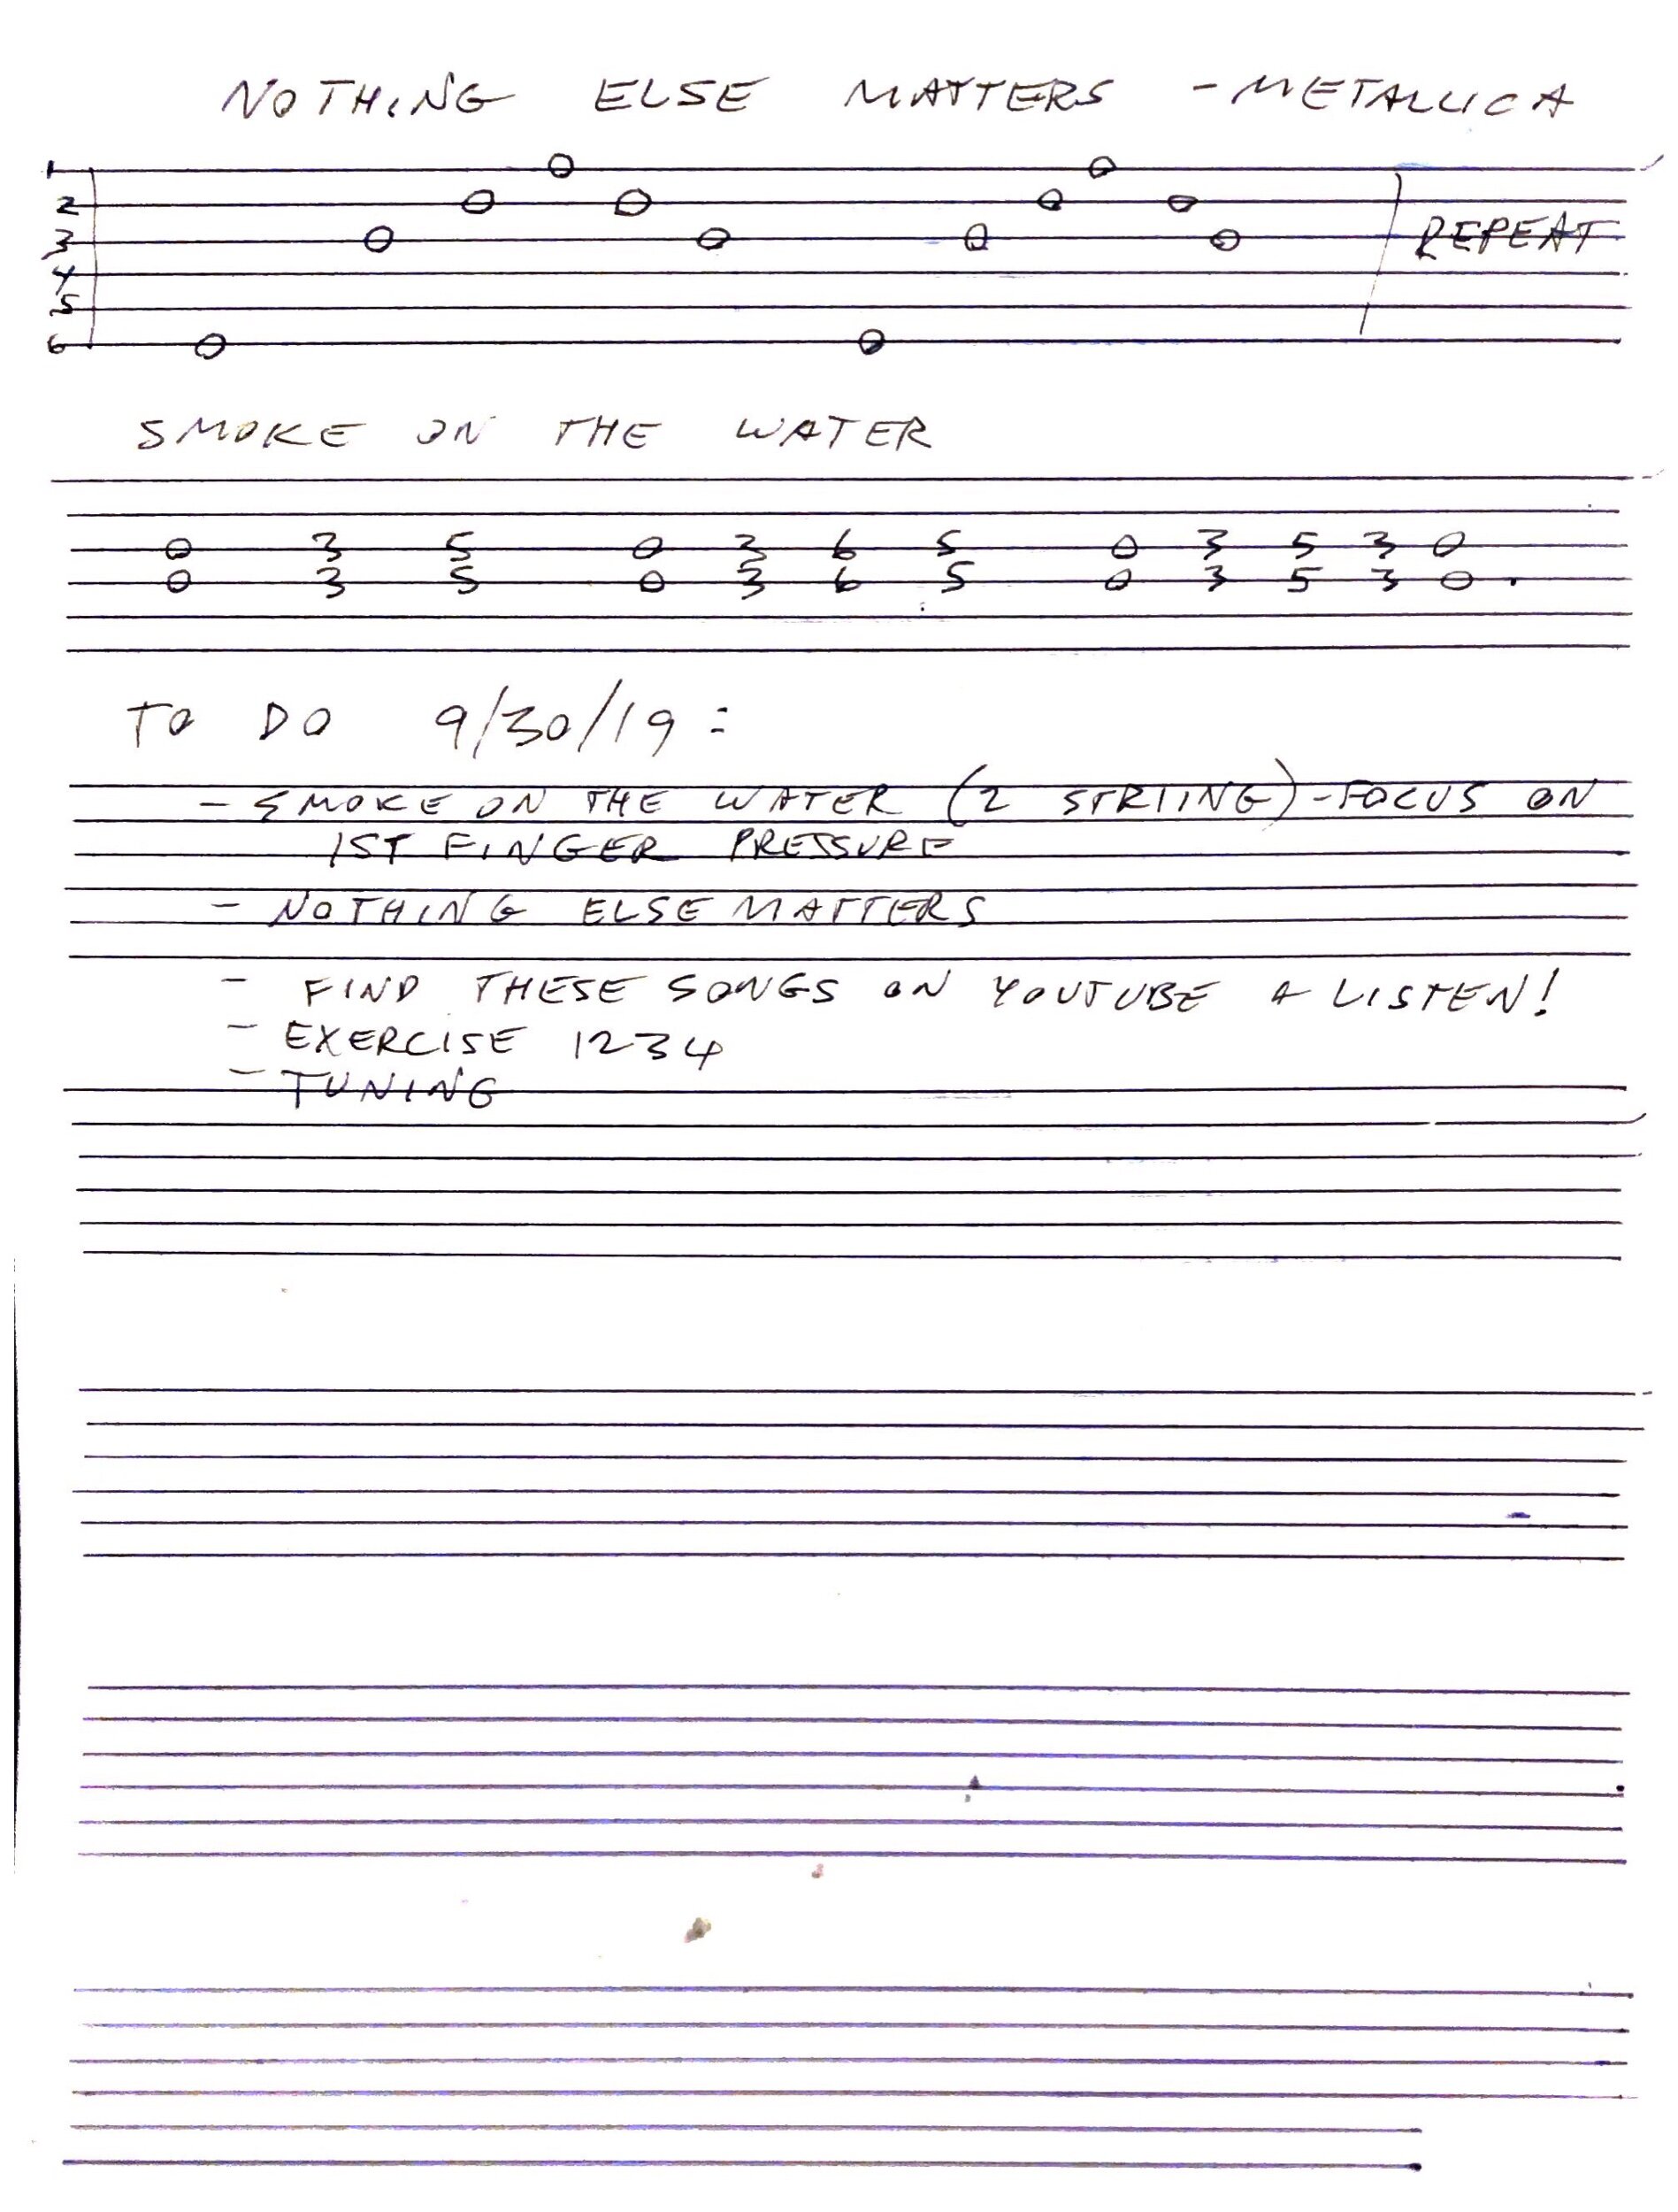 NOTHING ELSE MATTERS - METALLICA
1
2
3
4
5
6
0 0 0 0 0 0 0 0 0 0 0 0
REPEAT
SMOKE ON THE WATER
0 3 5 0 3 6 5 0 3 5 3 0
0 3 5 0 3 6 5 0 3 5 3 0
TO DO 9/30/19:
- SMOKE ON THE WATER (2 STRIING) - FOCUS ON
1ST FINGER PRESSURE
- NOTHING ELSE MATTERS
- FIND THESE SONGS ON YOUTUBE & LISTEN!
- EXERCISE 1234
- TUNING